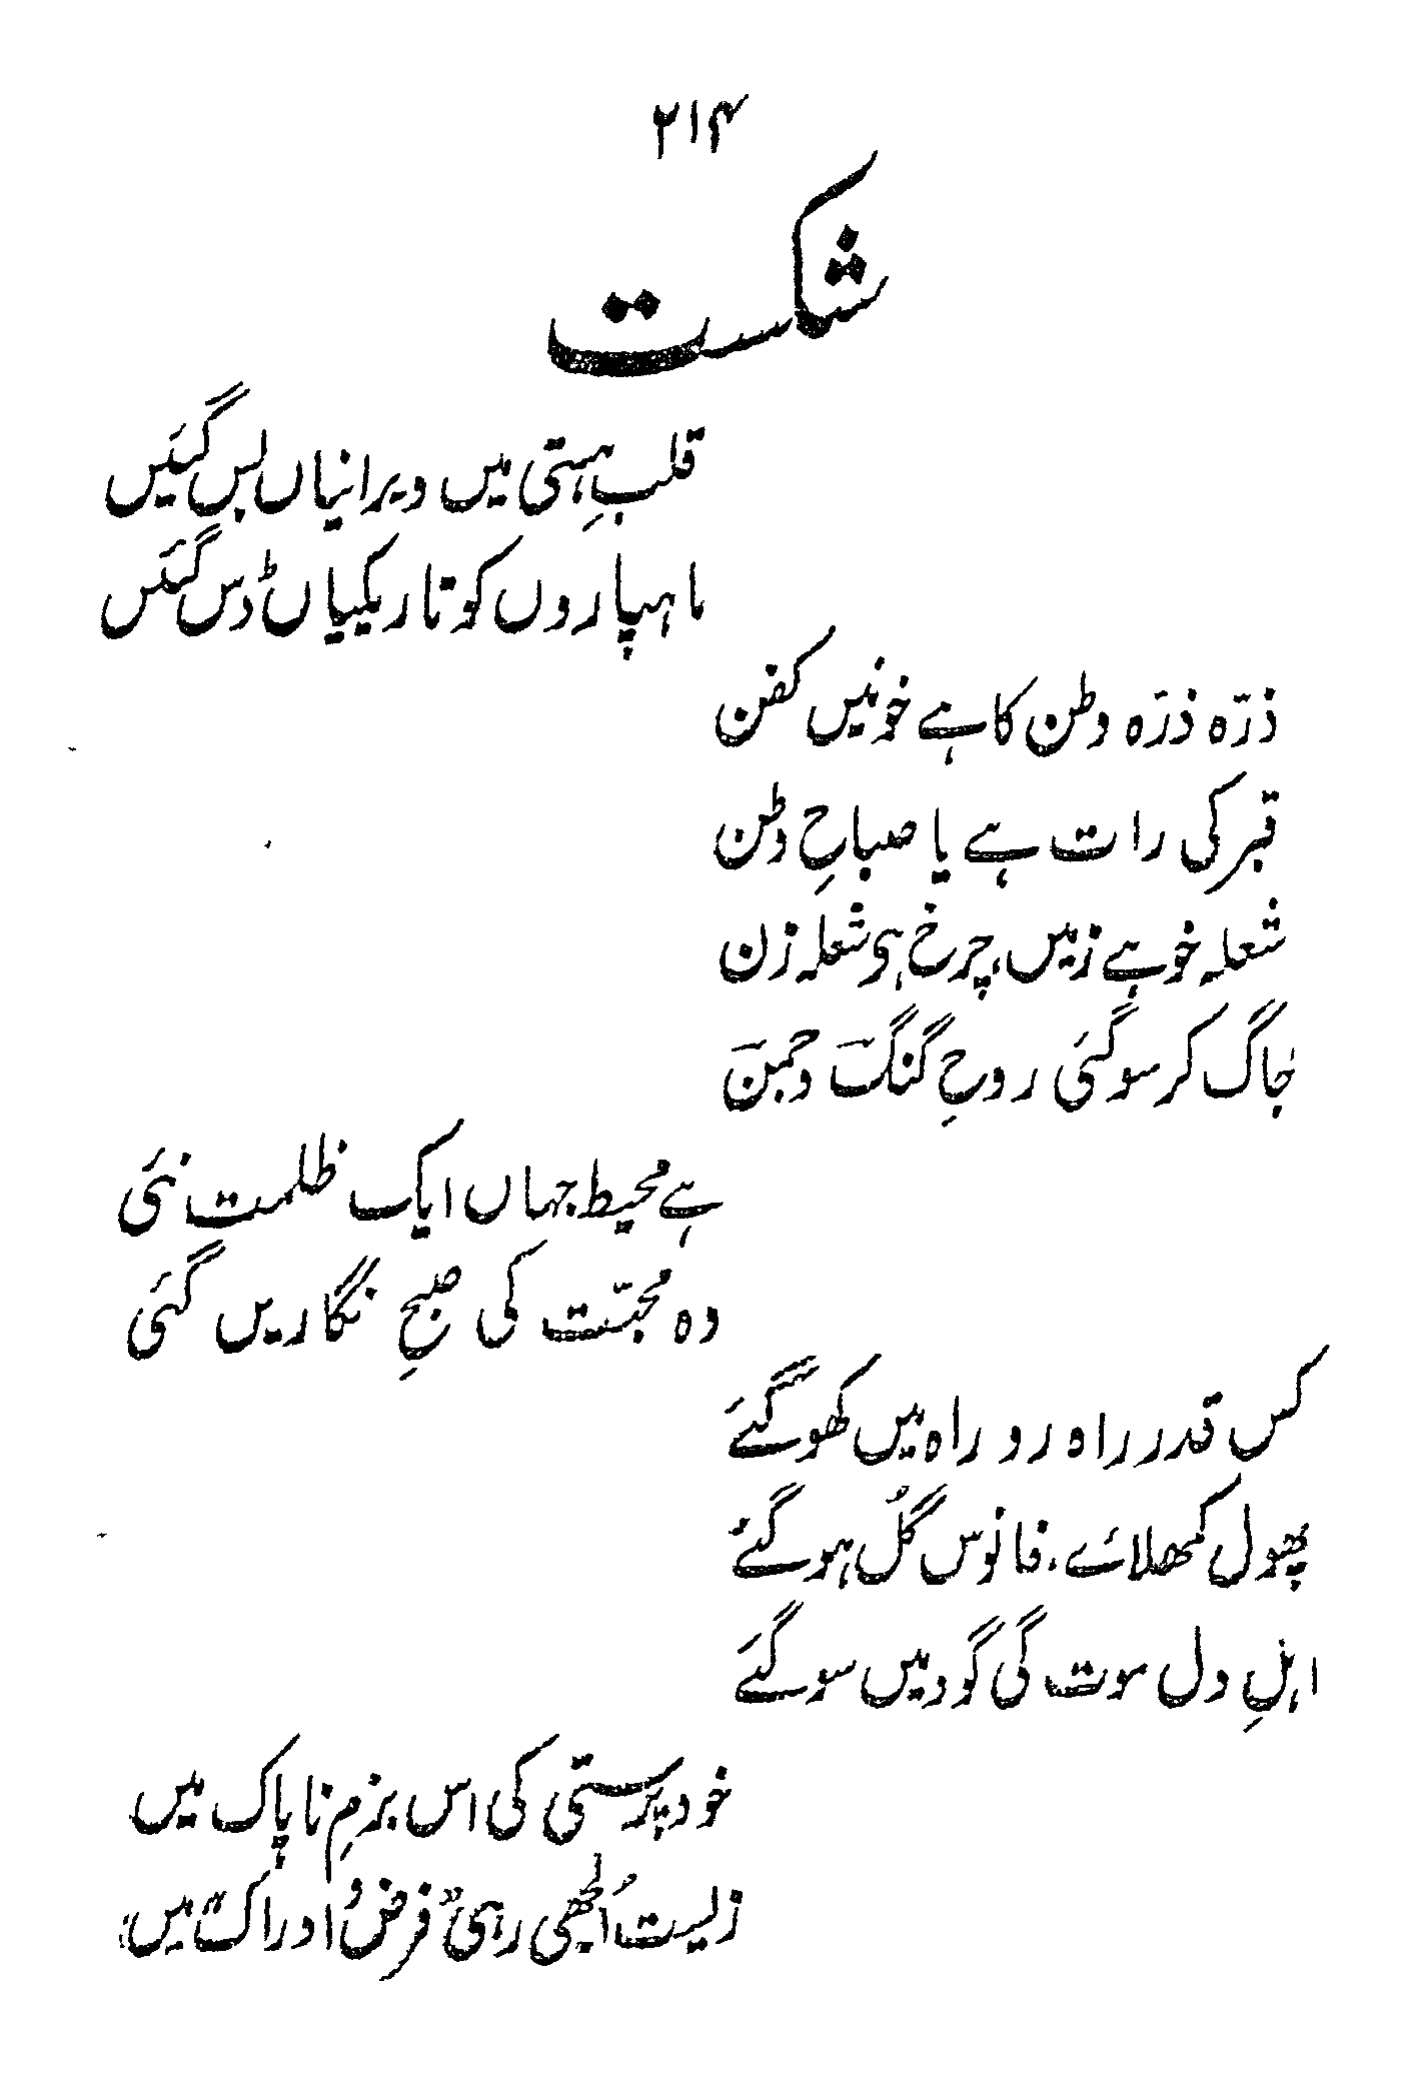 ۲۱۴
شکست
قلبِ ہستی میں ویرانیاں بس گئیں
ماہپاروں کو تاریکیاں ڈس گئیں
ذرّہ ذرّہ وطن کا ہے خونیں کفن
قبر کی رات ہے یا صباحِ وطن
شعلہ خو ہے زمیں، چرخ ہی شعلہ زن
جاگ کر سو گئی روحِ گنگ و جمن
ہے محیط جہاں ایک ظلمت نئی
وہ محبّت کی صبحِ نگاریں گئی
کس قدر راہ رو راہ میں کھو گئے
پھول کمھلائے، فانوس گُل ہو گئے
اہلِ دل موت کی گود میں سو گئے
خود پرستی کی اس بزمِ ناپاک میں
زیست اُلجھی رہی "فرض و ادراک" میں